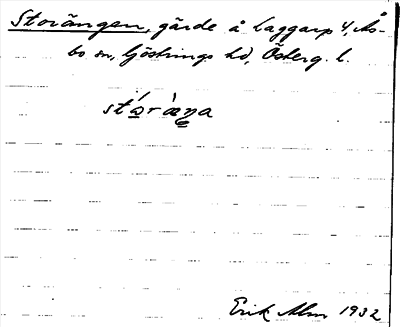 Storängen, gärde å Laggarp 4, Ås-
bo sn, Göstrings hd, Österg. l.
stɷ́rὰŋa
Erik Alm 1932